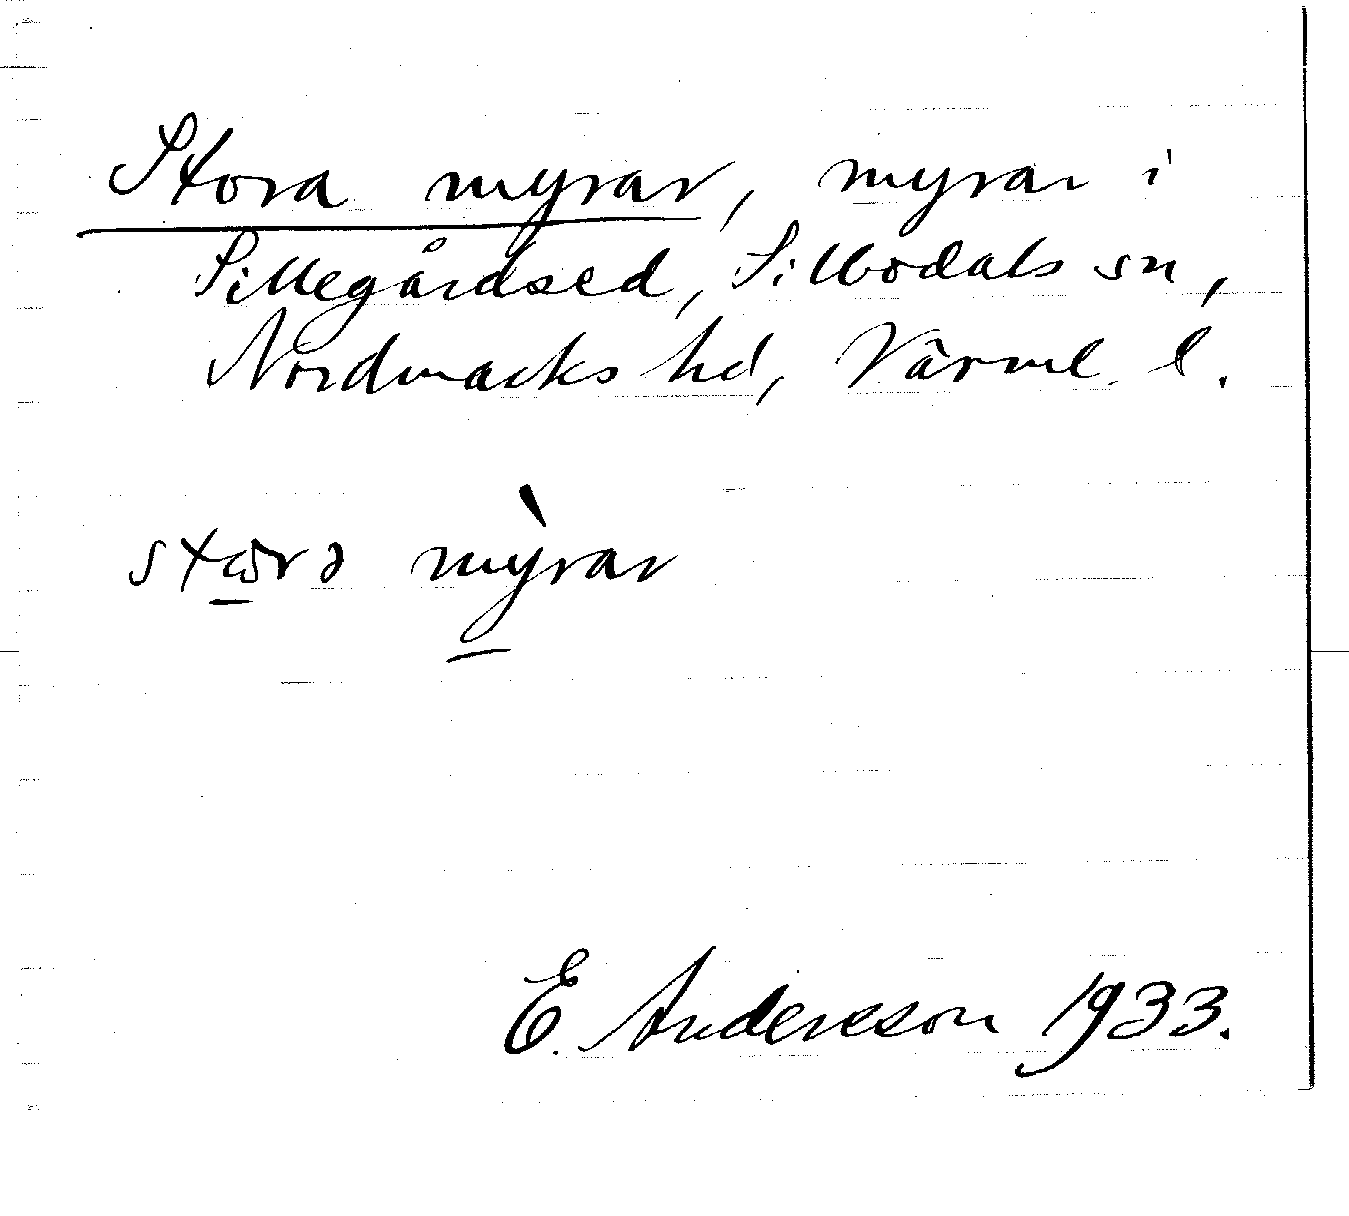 Stora myrar, myrar i
Sillegårdsed, Sillbodals sn,
Nordmarks hd, Värml. l.
myrar
E. Andersson 1933.